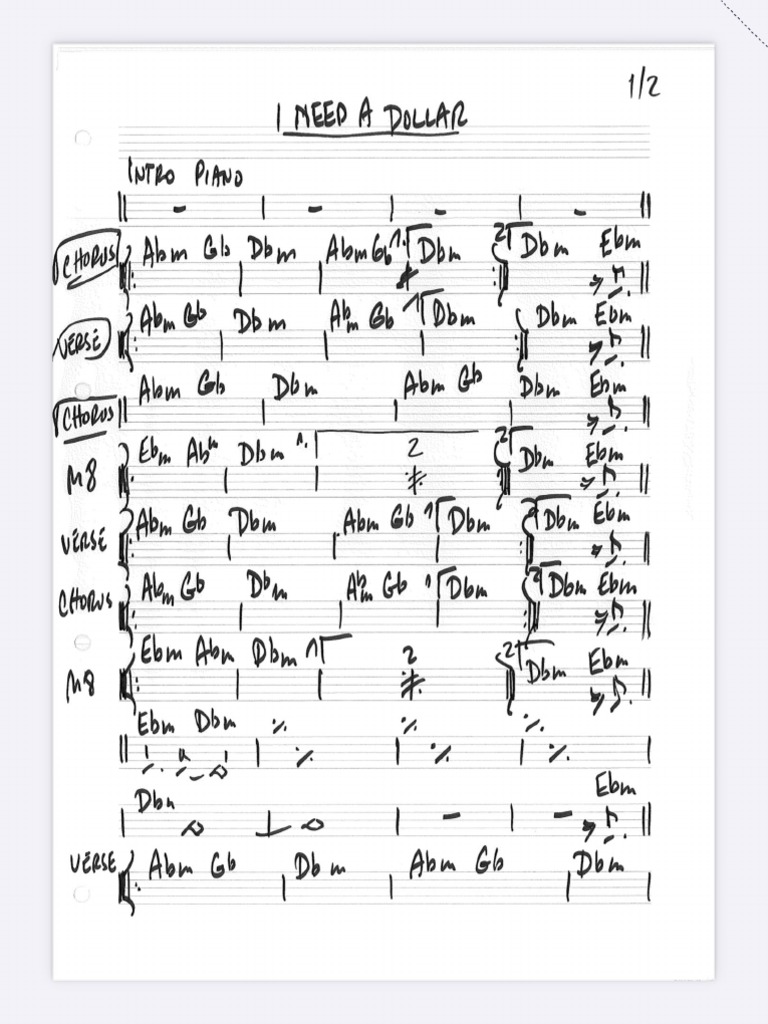 1/2
I NEED A DOLLAR
INTRO PIANO
CHORUS Abm Gb Dbm Abm Gb 1. Dbm 2 Dbm Ebm
VERSE Abm Gb Dbm Abm Gb 1 Dbm Dbm Ebm
CHORUS Abm Gb Dbm Abm Gb Dbm Ebm
M8 Ebm Abm Dbm 1. 2 2 Dbm Ebm
VERSE Abm Gb Dbm Abm Gb 1 Dbm 2 Dbm Ebm
CHORUS Abm Gb Dbm Abm Gb 1 Dbm 2 Dbm Ebm
M8 Ebm Abm Dbm 1 2 2 Dbm Ebm
Ebm Dbm
Dbm Ebm
VERSE Abm Gb Dbm Abm Gb Dbm